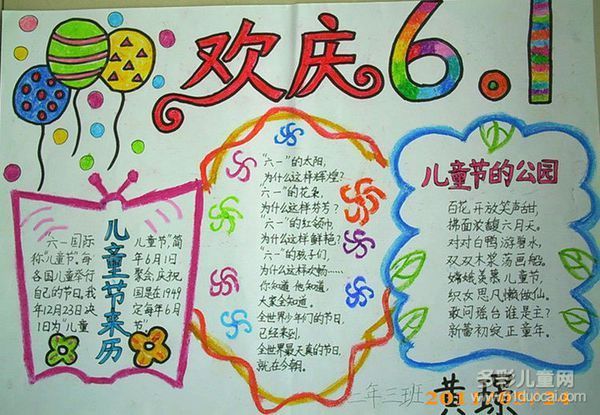 欢庆6.1
儿童节来历
"六一国际
你"儿童节",每
各国儿童举行
自己的节日.我
年12月23日决
1日为"儿童
儿童节"简
年6月1日
聚会,庆祝
国是在1949
定每年6月
节"
"六一"的太阳,
为什么这样辉煌?
"六一"的花朵,
为什么这样芬芳?
"六一"的红领巾
为什么这样鲜艳?
"六一"的孩子们,
为什么这样欢畅……
你知道他知道.
大家全知道.
全世界少年们的节日.
已经来到,
全世界最天真的节日.
就在今朝.
儿童节的公园
百花开放笑声甜,
拂面浓馥六月天。
对对白鸭游碧水,
双双木桨荡画船。
嫦娥羡慕儿童节,
织女思凡懒做仙。
敢问瑶台谁是主?
新蕾初绽正童年.
年三班
黄
多彩儿童网